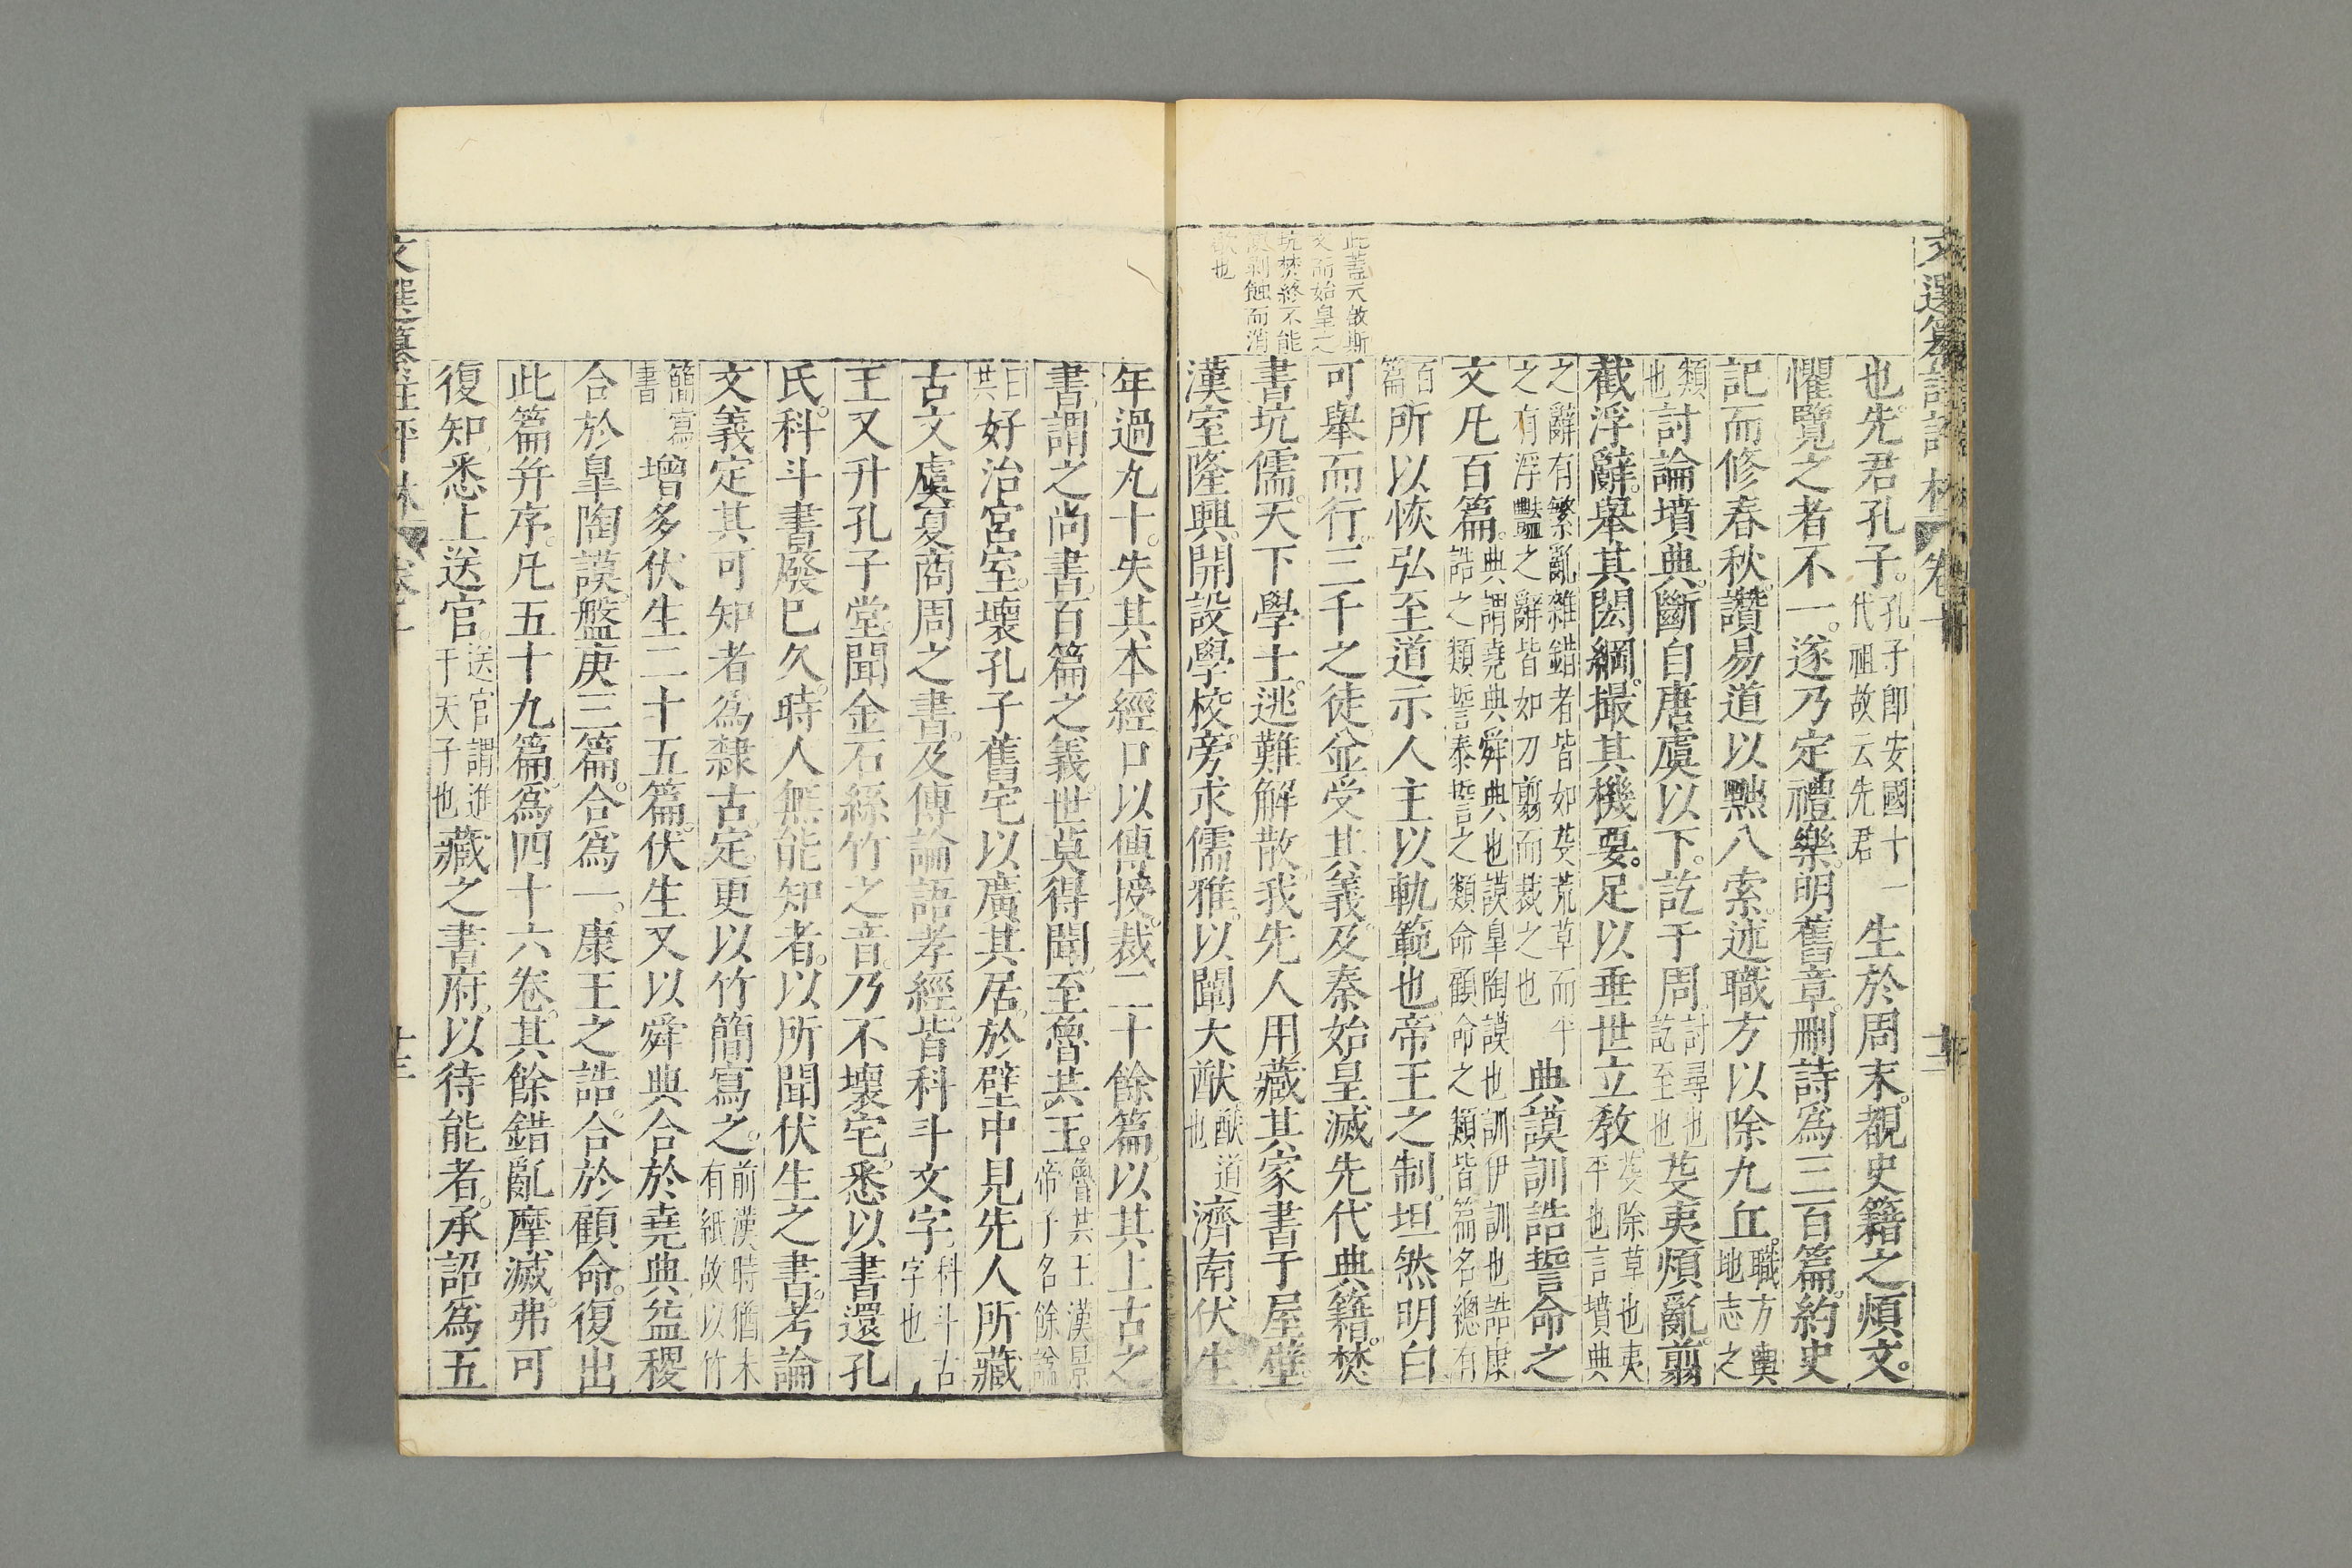 文選纂註評林 卷十
也先君孔子。孔子卽安國十一代祖故云先君生於周末。覩史籍之煩文。
懼覽之者不一。遂乃定禮樂。明舊章。刪詩爲三百篇。約史
記而修春秋。讚易道以黜八索。述職方以除九丘。職方輿地志之
類也討論墳典。斷自唐虞以下。訖于周。討尋也訖至也芟夷煩亂。翦
截浮辭。舉其閎綱。撮其機要。足以垂世立教。芟除草也夷平也言墳典
之辭有繁亂雜錯者皆如芟荒草而平之有浮豔之辭皆如刀翦而裁之也典謨訓誥誓命之
文凡百篇。典謂堯典舜典也謨皐陶謨也訓伊訓也誥康誥之類誓泰誓之類命顧命之類皆篇名總有
百篇所以恢弘至道示人主以軌範也。帝王之制。坦然明白
可舉而行。三千之徒。並受其義。及秦始皇滅先代典籍。焚
書坑儒。天下學士。逃難解散。我先人用藏其家書于屋壁。
漢室隆興。開設學校。旁求儒雅。以闡大猷猷道也濟南伏生
此蓋天啟斯
文而始皇之
坑焚終不能
剥蝕而消
歇也
年過九十。失其本經口以傳授。裁二十餘篇。以其上古之
書。謂之尚書。百篇之義。世莫得聞。至魯共王。魯共王漢景帝子名餘諡
曰共好治宮室。壞孔子舊宅以廣其居。於壁中見先人所藏
古文虞夏商周之書。及傳論語孝經。皆科斗文字科斗古字也
王又升孔子堂。聞金石絲竹之音。乃不壞宅。悉以書還孔
氏。科斗書廢巳久。時人無能知者。以所聞伏生之書。考論
文義定其可知者爲隸古。定更以竹簡寫之。前漢時猶未有紙故以竹
簡寫書增多伏生二十五篇。伏生又以舜典合於堯典。益稷
合於皐陶謨。盤庚三篇。合爲一。康王之誥。合於顧命。復出
此篇幷序。凡五十九篇。爲四十六卷。其餘錯亂摩滅。弗可
復知。悉上送官。送官謂進于天子也藏之書府。以待能者。承詔爲五
文選纂註評林 卷十
十三